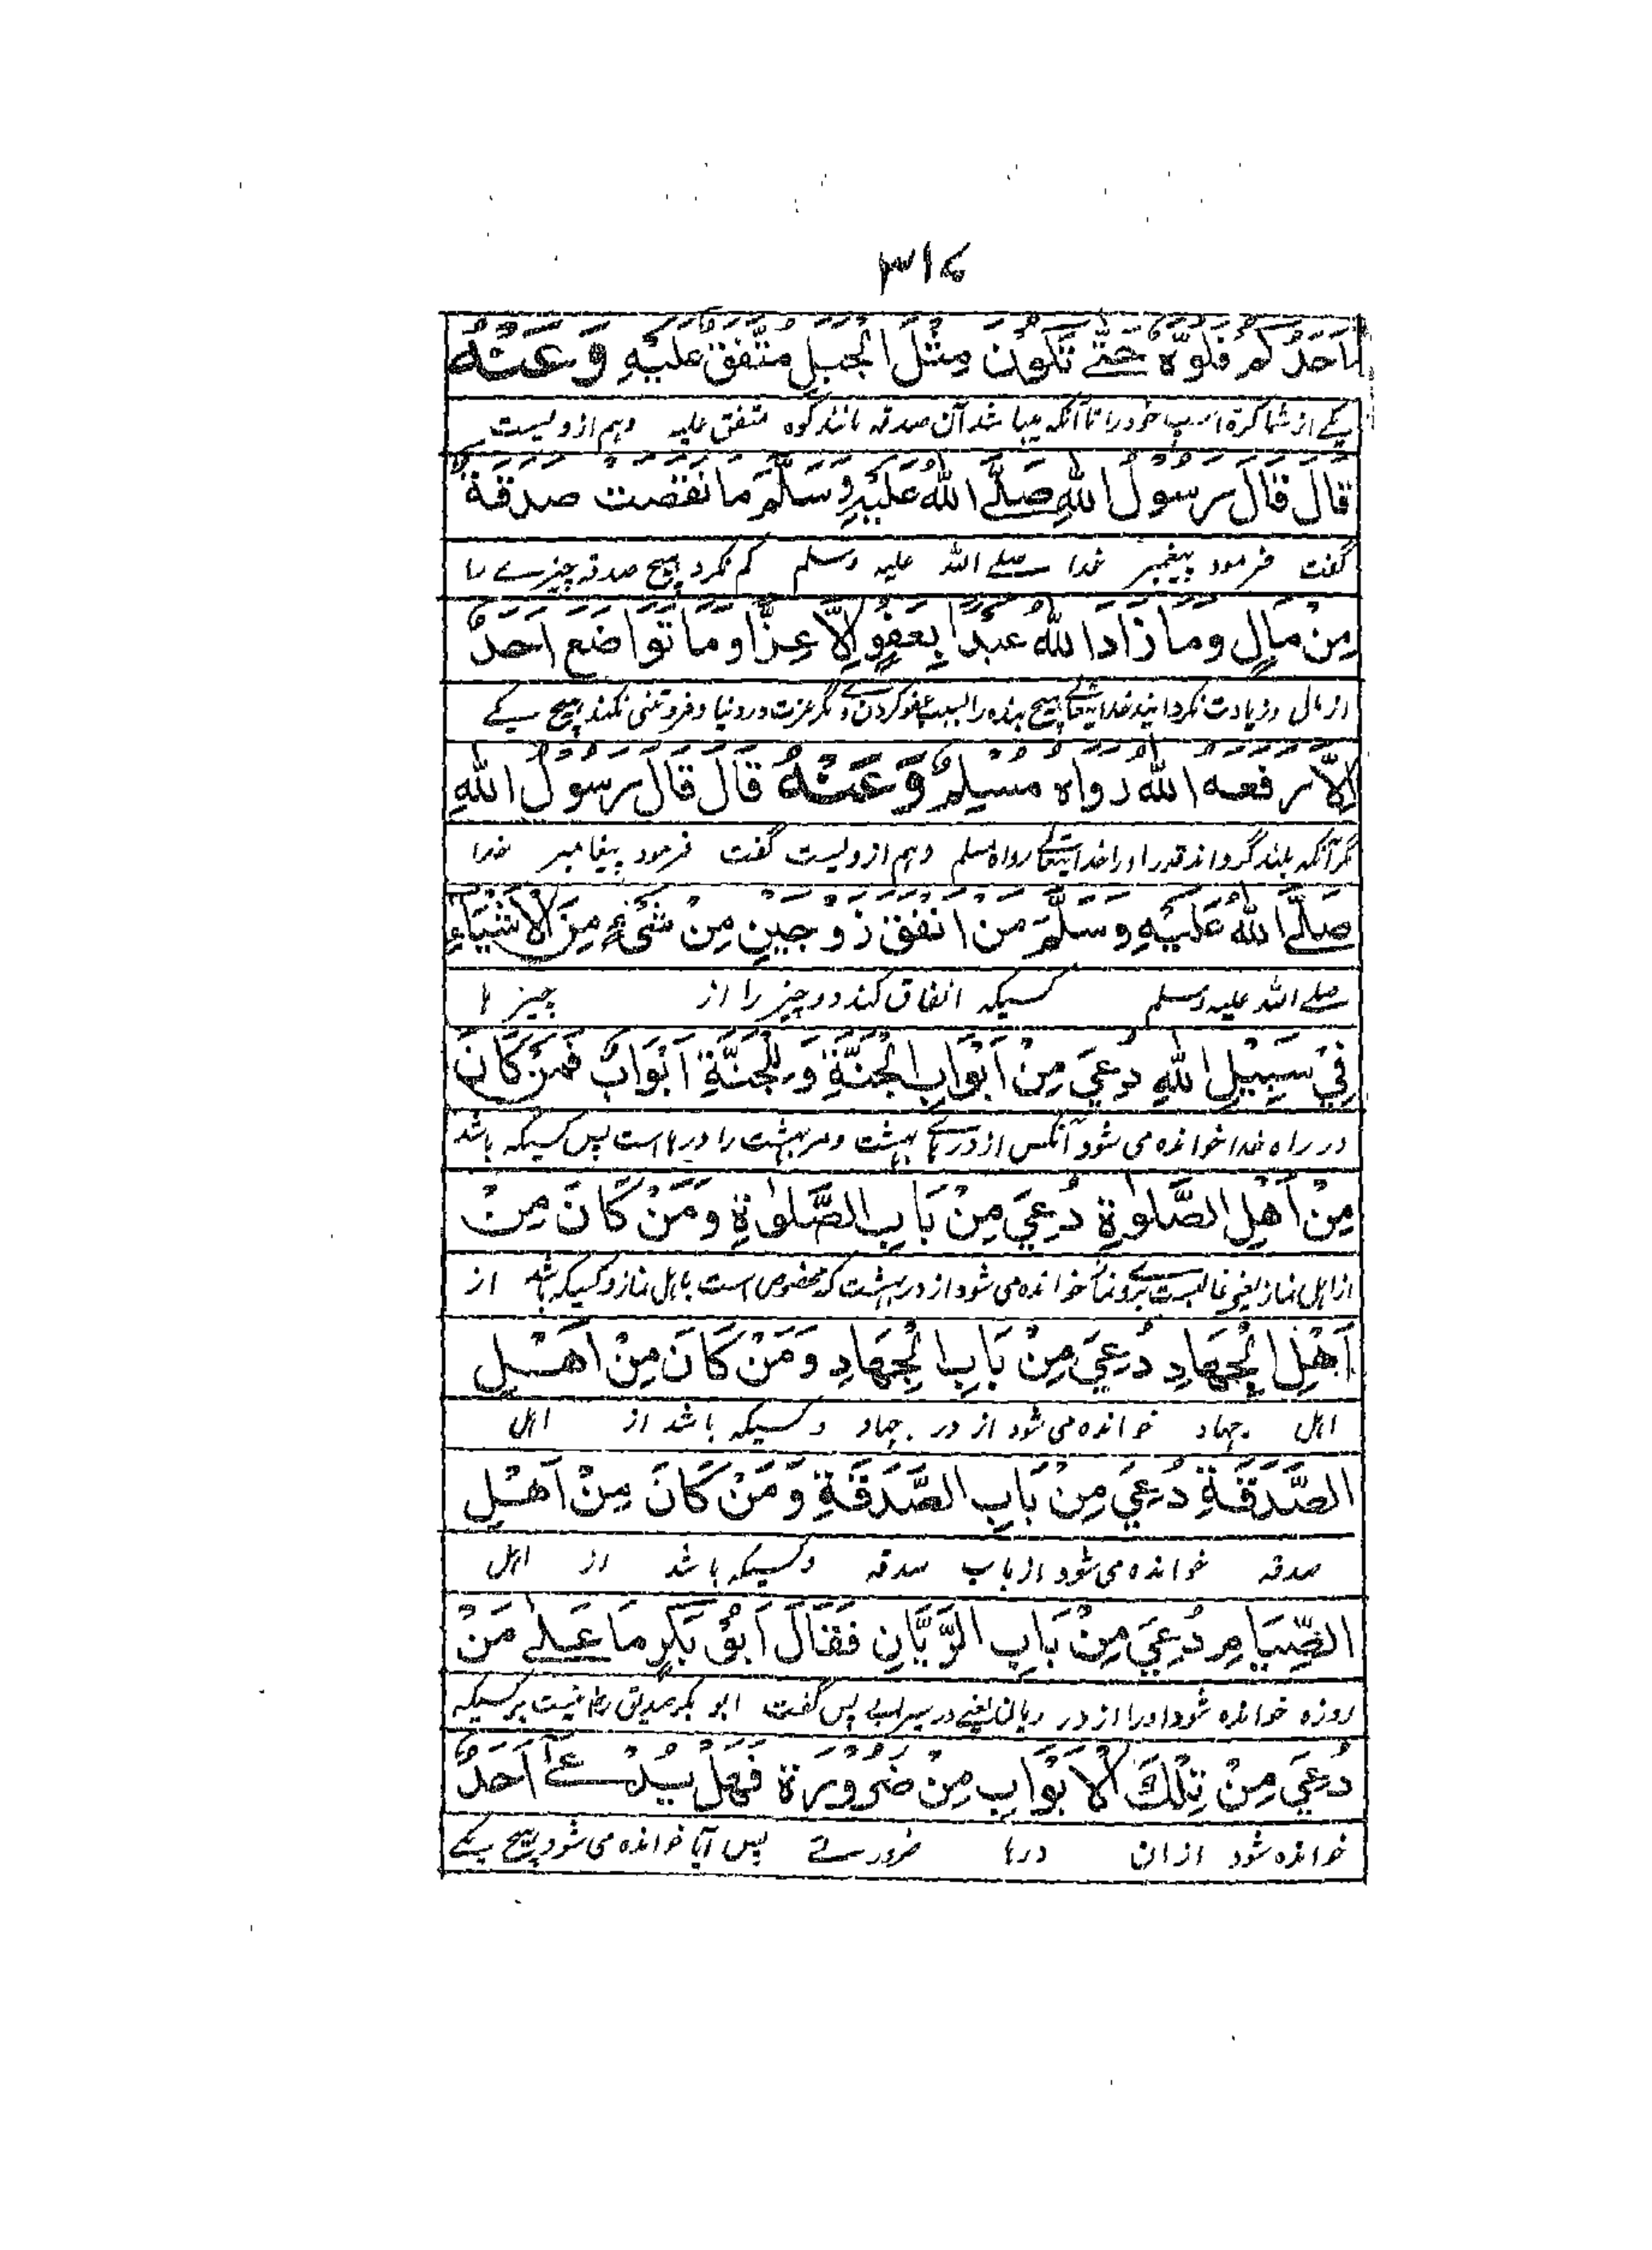 ٣١٤
أَحَدُكُمْ فَلُوَّهُ حَتّٰے تَكُوْنَ مِثْلَ الْجَبَلِ مُتَّفَقٌ عَلَيْهِ وَعَنْهُ
یکے از شما کرۂ اسپ خود را تا آنکہ میباشد آن صدقہ مانند کوہ متفق علیہ وہم از ویست
قَالَ قَالَ رَسُوْلُ اللهِ صَلَّے اللهُ عَلَيْهِ وَسَلَّمَ مَا نَقَصَتْ صَدَقَةٌ
گفت فرمود پیغمبر خدا صلے اللہ علیہ وسلم کم نکرد ہیچ صدقہ چیزے را
مِنْ مَالٍ وَمَا زَادَ اللهُ عَبْدًا بِعَفْوٍ اِلَّا عِزًّا وَمَا تَوَاضَعَ اَحَدٌ
از مال و زیادت نکرداند خدایتعالے ہیچ بندہ را بسبب عفو کردن مگر عزت در دنیا و فروتنی نکند ہیچ یکے
اِلَّا رَفَعَهُ اللهُ رَوَاهُ مُسْلِمٌ وَعَنْهُ قَالَ قَالَ رَسُوْلُ اللهِ
مگر آنکہ بلند گرداند قدر اورا خدایتعالے رواہ مسلم وہم از ویست گفت فرمود پیغامبر خدا
صَلَّے اللهُ عَلَيْهِ وَسَلَّمَ مَنْ اَنْفَقَ زَوْجَيْنِ مِنْ شَیْءٍ مِنَ الْاَشْيَاءِ
صلے اللہ علیہ وسلم کسیکہ انفاق کند دو چیز را از چیزہا
فِيْ سَبِيْلِ اللهِ دُعِيَ مِنْ اَبْوَابِ الْجَنَّةِ وَلِلْجَنَّةِ اَبْوَابٌ فَمَنْ كَانَ
در راہ خدا خواندہ می شود آنکس از درہاے بہشت و مر بہشت را درہا است پس کسیکہ باشد
مِنْ اَهْلِ الصَّلٰوةِ دُعِيَ مِنْ بَابِ الصَّلٰوةِ وَمَنْ كَانَ مِنْ
از اہل نماز یعنی غالبست برو نماز خواندہ می شود از در بہشت کہ مخصوص است باہل نماز و کسیکہ باشد از
اَهْلِ الْجِهَادِ دُعِيَ مِنْ بَابِ الْجِهَادِ وَمَنْ كَانَ مِنْ اَهْلِ
اہل جہاد خواندہ می شود از در جہاد و کسیکہ باشد از اہل
الصَّدَقَةِ دُعِيَ مِنْ بَابِ الصَّدَقَةِ وَمَنْ كَانَ مِنْ اَهْلِ
صدقہ خواندہ می شود از باب صدقہ و کسیکہ باشد از اہل
الصِّيَامِ دُعِيَ مِنْ بَابِ الرَّيَّانِ فَقَالَ اَبُوْ بَكْرٍ مَا عَلٰے مَنْ
روزہ خواندہ شود اورا از در ریان یعنے در سیرابی پس گفت ابو بکر صدیق نیست بر کسیکہ
دُعِيَ مِنْ تِلْكَ الْاَبْوَابِ مِنْ ضَرُوْرَةٍ فَهَلْ يُدْعٰے اَحَدٌ
خواندہ شود ازان درہا ضرورتے پس آیا خواندہ می شود ہیچ یکے